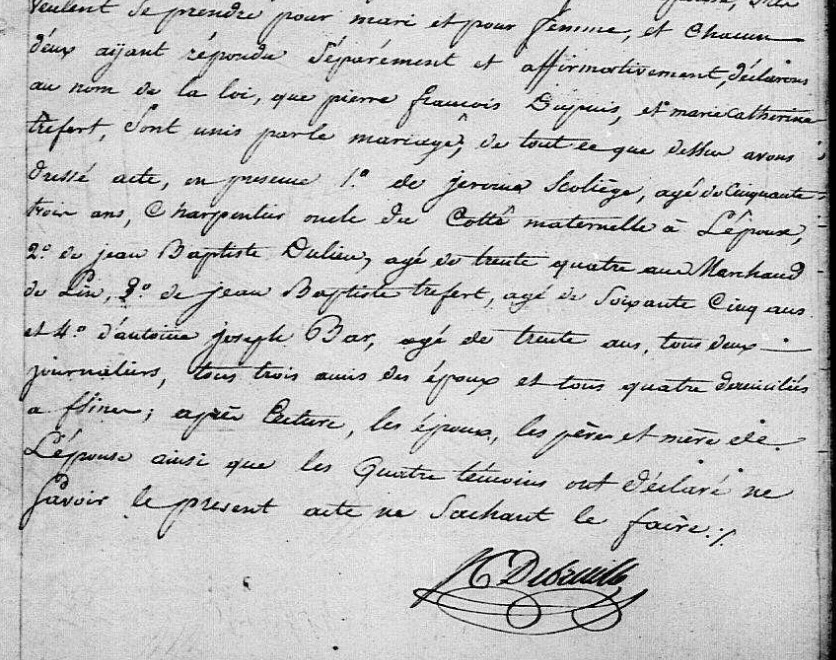 veulent se prendre pour mari et pour femme, et chacun
d'eux ayant répondu séparément et affirmativement, déclarons
au nom de la loi, que pierre françois Dupuis, et marie Catherine
trefert, sont unis par le mariage, de tout ce que dessu avons
dressé acte, en presence 1.° de jerome Scoliège, agé de Cinquante
trois ans, Charpentier oncle du Cotté maternelle à L'époux,
2.° de jean Baptiste Dulieu, agé de trente quatre ans Marchand
de Lin, 3.° de jean Baptiste trefert, agé de Soixante Cinq ans
et 4.° d'antoine joseph Bar, agé de trente ans, tous deux
journaliers, tous trois amis des époux et tous quatre domiciliés
a ; après Lecture, les époux, les père et mère de
L'épouse ainsi que les Quatre témoins ont déclaré ne
Savoir le present acte ne Sachant le faire ./.